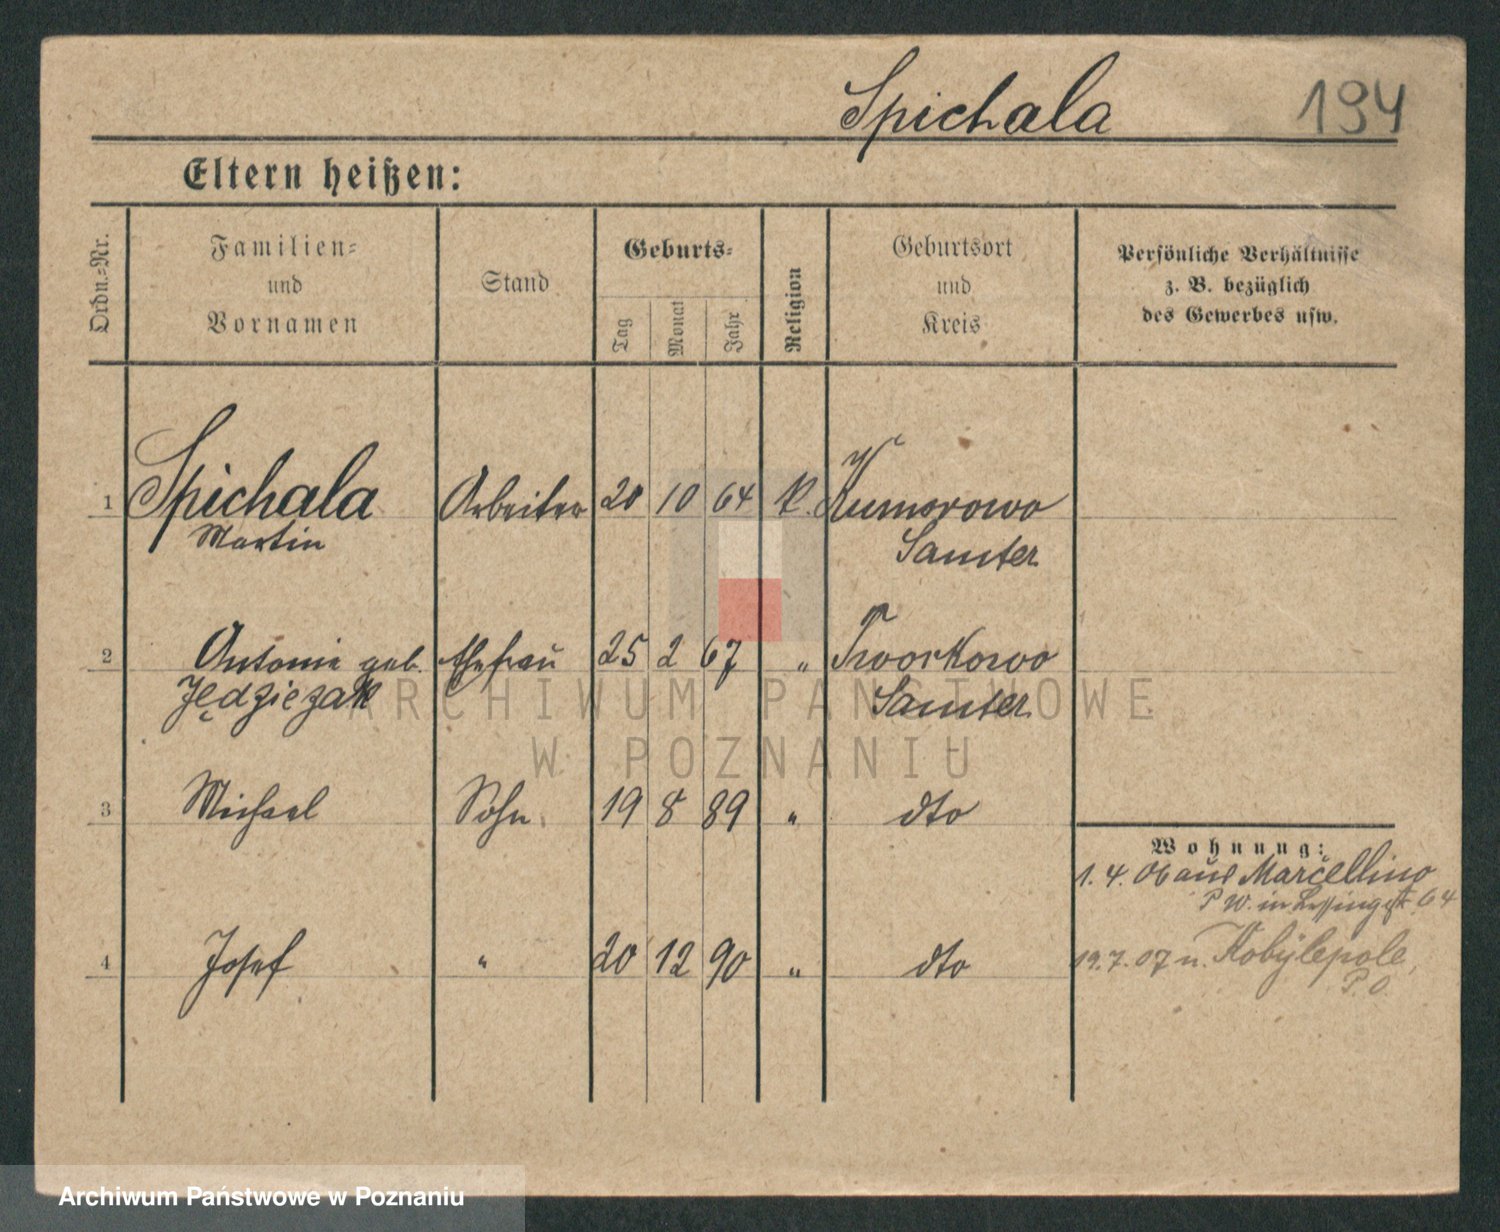 Spichala 194
Eltern heißen:
Ordn.-Nr.
Familien-
und
Vornamen
Stand
Geburts-
Tag
Monat
Jahr
Religion
Geburtsort
und
Kreis
Persönliche Verhältnisse
z. B. bezüglich
des Gewerbes usw.
1 Spichala Arbeiter 20 10 64 K. Kumorowo
Martin Samter
2 Antonie geb. Ehefrau 25 2 67 " Tworkowo
Jędziezak Samter
3 Michael Sohn 19 8 89 " dto
Wohnung:
1. 4. 06 aus Marcellino
P W. in Lessingstr. 64
4 Josef " 20 12 90 " dto
19. 7. 07 n. Kobylepole,
P. O.
ARCHIWUM PAŃSTWOWE
W POZNANIU
Archiwum Państwowe w Poznaniu